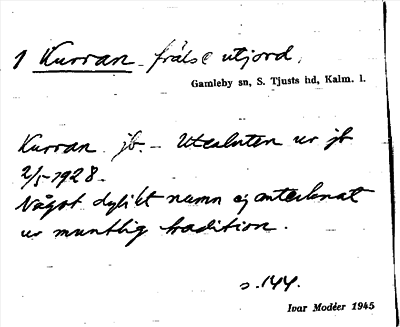 1 Kurran frälse utjord,
Gamleby sn, S. Tjusts hd, Kalm. l.
Kurran jb. – Utesluten ur jb
2/5 1928.
Något dylikt namn ej antecknat
ur muntlig tradition.
s. 144.
Ivar Modéer 1945